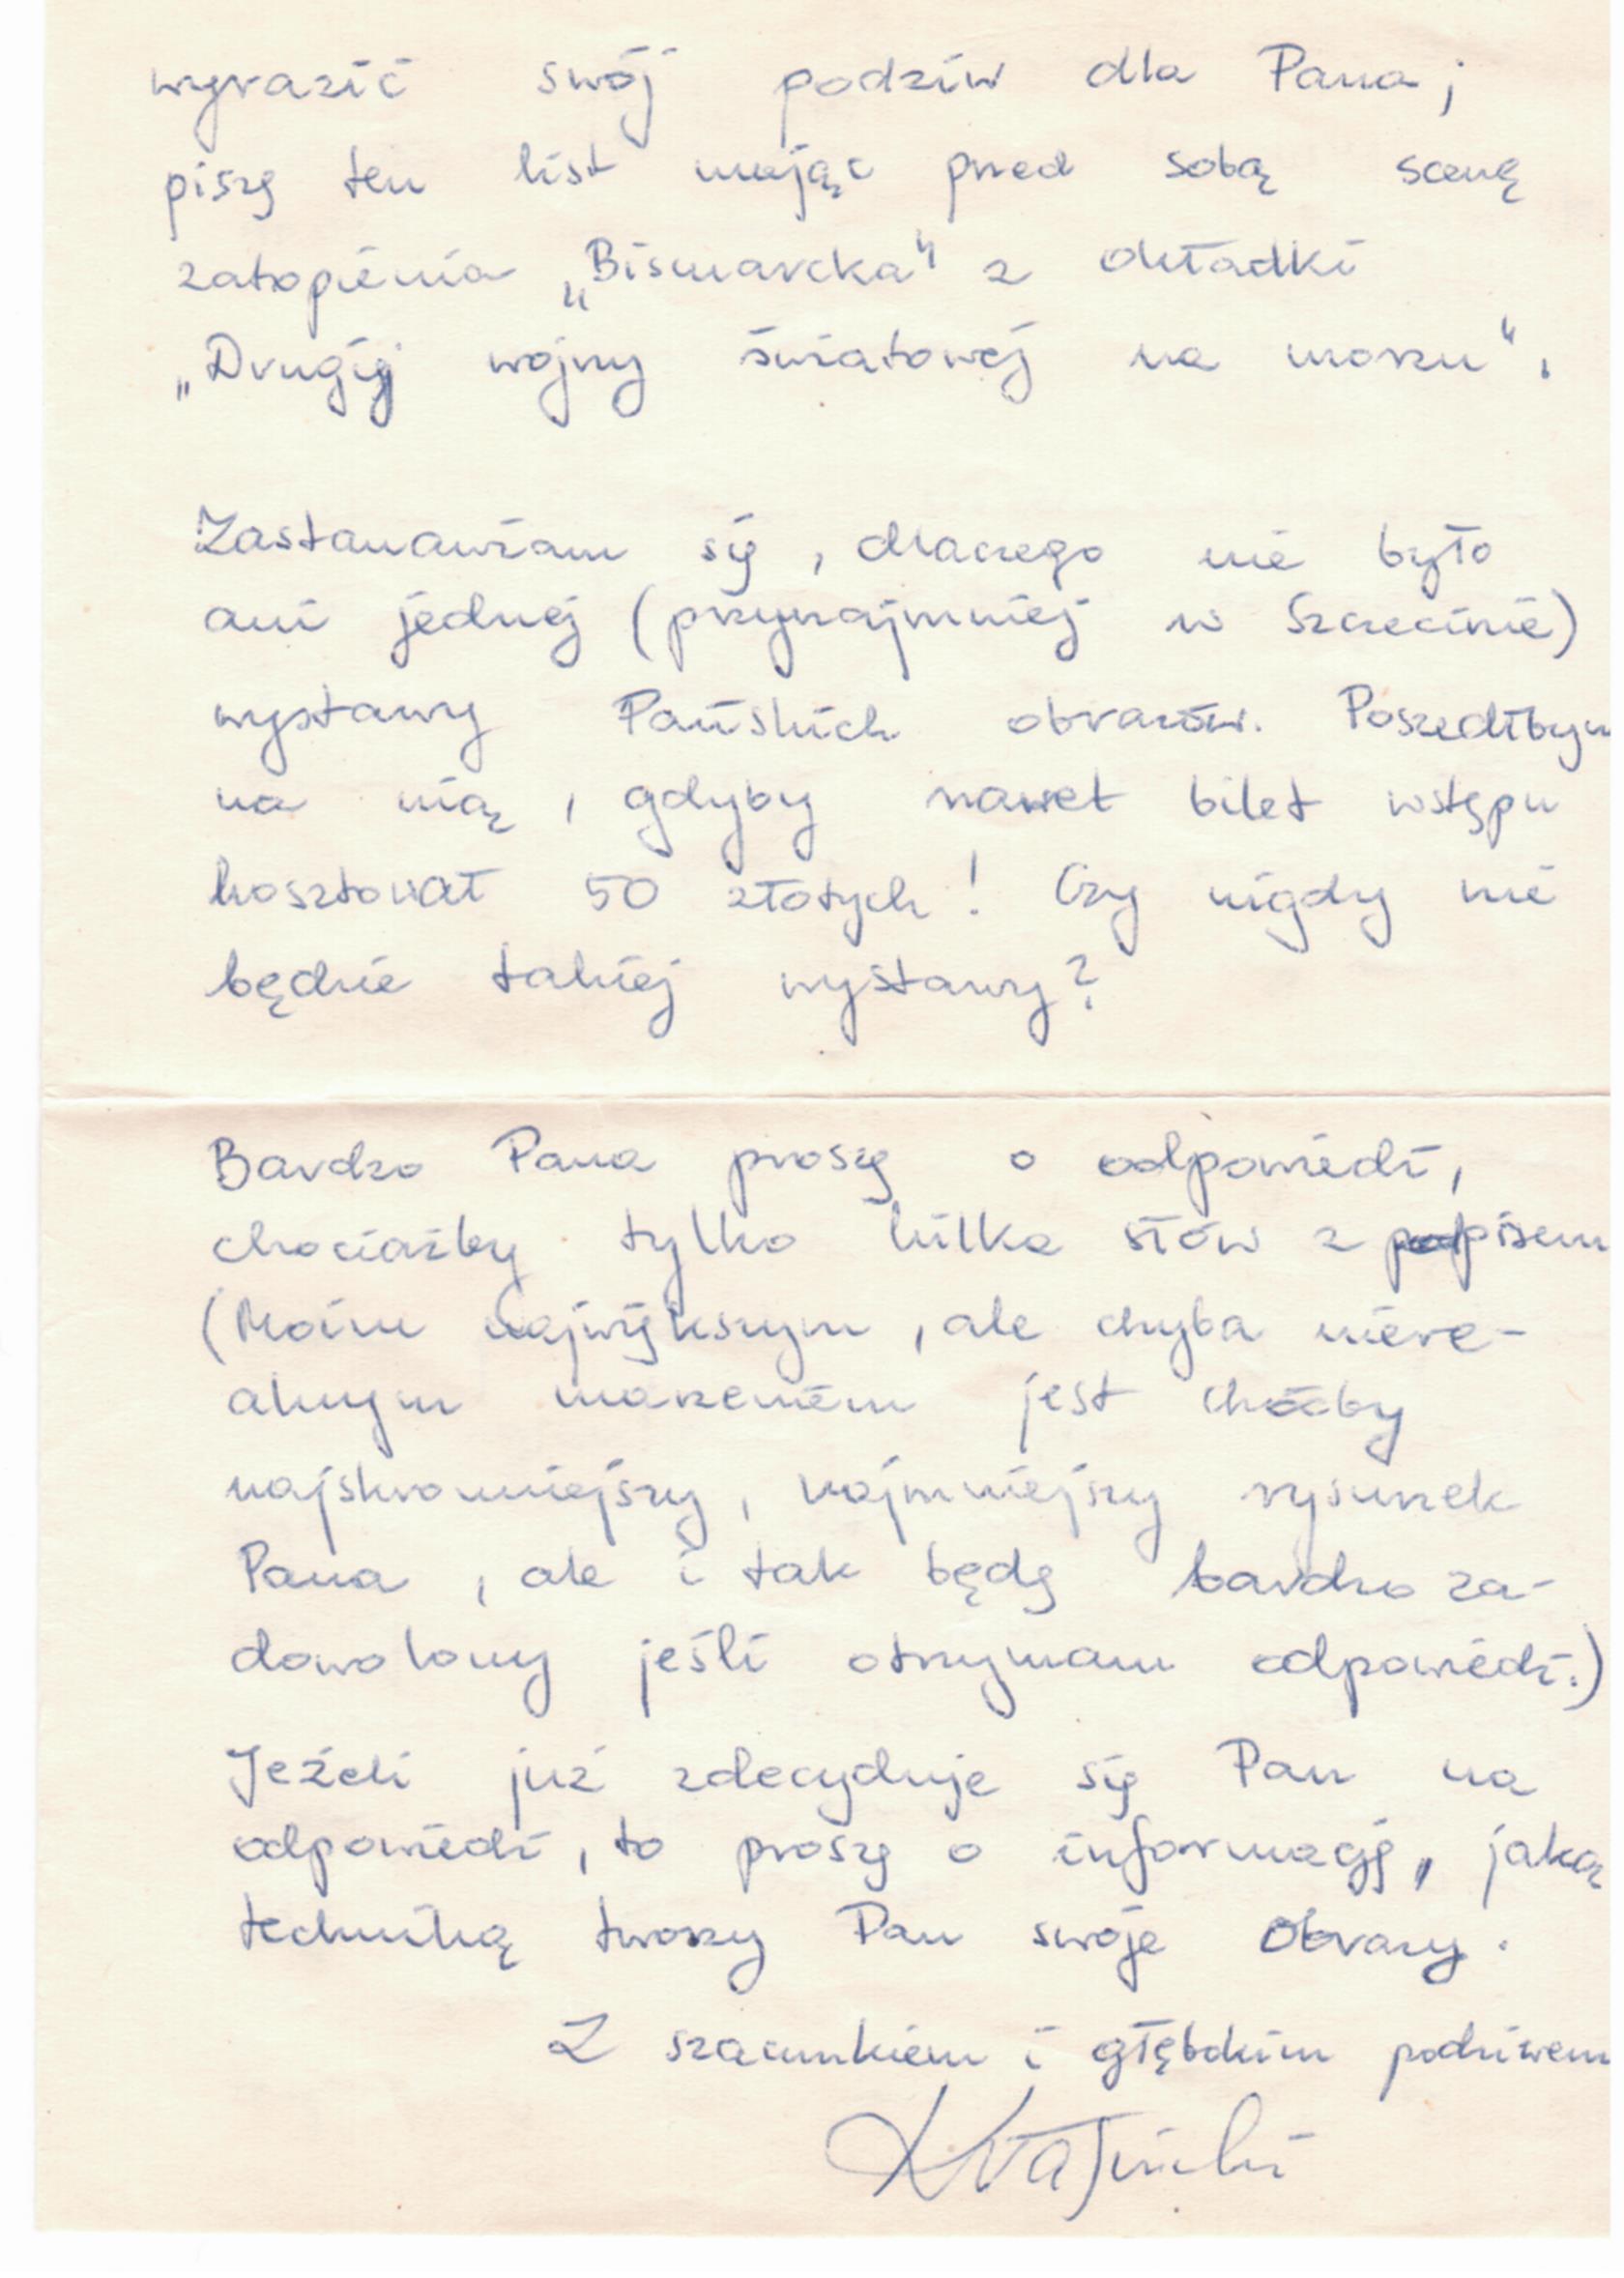 wyrazić swój podziw dla Pana;
piszę ten list mając przed sobą scenę
zatopienia „Bismarcka" z okładki
„Drugiej wojny światowej na morzu".
Zastanawiam się, dlaczego nie było
ani jednej (przynajmniej w Szczecinie)
wystawy Pańskich obrazów. Poszedłbym
na nią, gdyby nawet bilet wstępu
kosztował 50 złotych! Czy nigdy nie
będzie takiej wystawy?
Bardzo Pana proszę o odpowiedź,
chociażby tylko kilka słów z podpisem
(Moim największym, ale chyba niere-
alnym marzeniem jest choćby
najskromniejszy, najmniejszy rysunek
Pana, ale i tak będę bardzo za-
dowolony jeśli otrzymam odpowiedź.)
Jeżeli już zdecyduje się Pan na
odpowiedź, to proszę o informację, jaką
techniką tworzy Pan swoje obrazy.
Z szacunkiem i głębokim podziwem